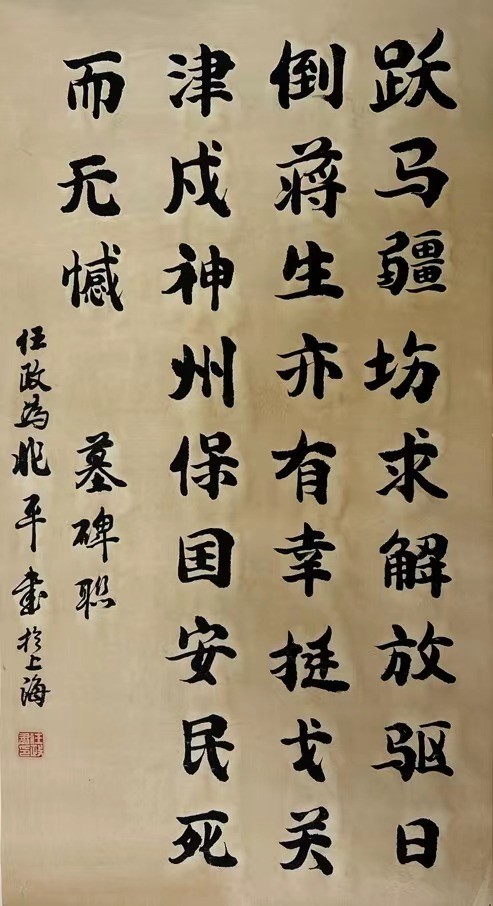 跃马疆场求解放驱日
倒蒋生亦有幸挺戈关
津戍神州保国安民死
而无憾 墓碑联
任政為兆平書於上海